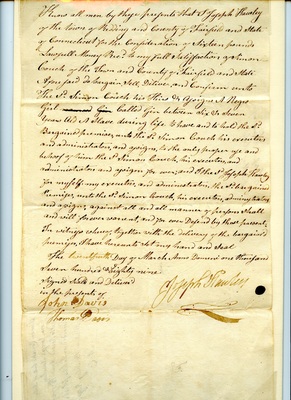 Know all men by these presents that I Joseph Hawley
of the town of Reding and County of Fairfield and State
of Connecticut for the Consideration of Sixteen pounds
Lawfull Money Recd to my full Satisfaction of Simon
Couch of the Town and County of Fairfield and State
Aforesaid do bargain Sell, Deliver, and Confirm unto
The Sd. Simon Couch his Heirs & Assigns A Negro
Girl Called Gin between Six & Seven
Years Old A Slave during life to have and to hold the Sd.
Bargained premises, unto the Sd. Simon Couch, his executors
and administrators, and assigns, to the only proper use and
behoof of him the Sd. Simon Couch, his executors, and
administrators and assigns for ever, and I the Sd. Joseph Hawley
for myself, my executors, and administrators, the Sd. bargained
Premises, unto the Sd. Simon Couch, his executors, administrators
and assigns, against all and all manner of persons Shall
and will for ever warrant, and for ever Defend by these presents,
In witness whereof, together with the delivery of the bargained
premises, I have hereunto Set my hand and Seal
The Day of March Anno Domini one thousand
Seven hundred & Eighty nine
Signed Seald and Deliverd
in the presents of
Joseph Hawley
John Davis
Thomas